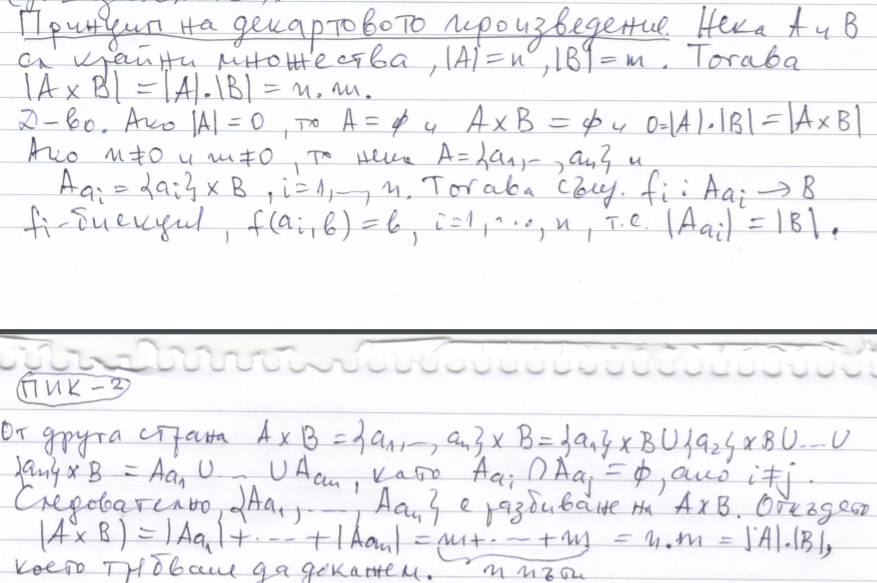 Принцип на декартовото произведение. Нека A и B
са крайни множества, |A|=n, |B|=m. Тогава
|A x B| = |A|.|B| = n.m.
Д-во. Ако |A|=0, то A=ϕ и A x B = ϕ и 0=|A|.|B|=|A x B|
Ако n≠0 и m≠0, то нека A={a₁,-,aₙ} и
A_{aᵢ} = {aᵢ} x B, i=1,-, n. Тогава същ. fᵢ : A_{aᵢ} → B
fᵢ-биекция, f(aᵢ,b)=b, i=1,..., n, т.е. |A_{aᵢ}| = |B|.
ПИК-2
От друга страна A x B = {a₁,-, aₙ} x B = {a₁} x B U {a₂} x B U...U
{aₙ} x B = A_{a₁} U ... U A_{aₙ}, като A_{aᵢ} ∩ A_{aⱼ} = ϕ, ако i≠j.
Следователно, {A_{a₁},..., A_{aₙ}} е разбиване на A x B. Откъдето
|A x B| = |A_{a₁}| + ... + |A_{aₙ}| = m + ... + m = n.m = |A|.|B|,
което трбваше да докажем. n пъти